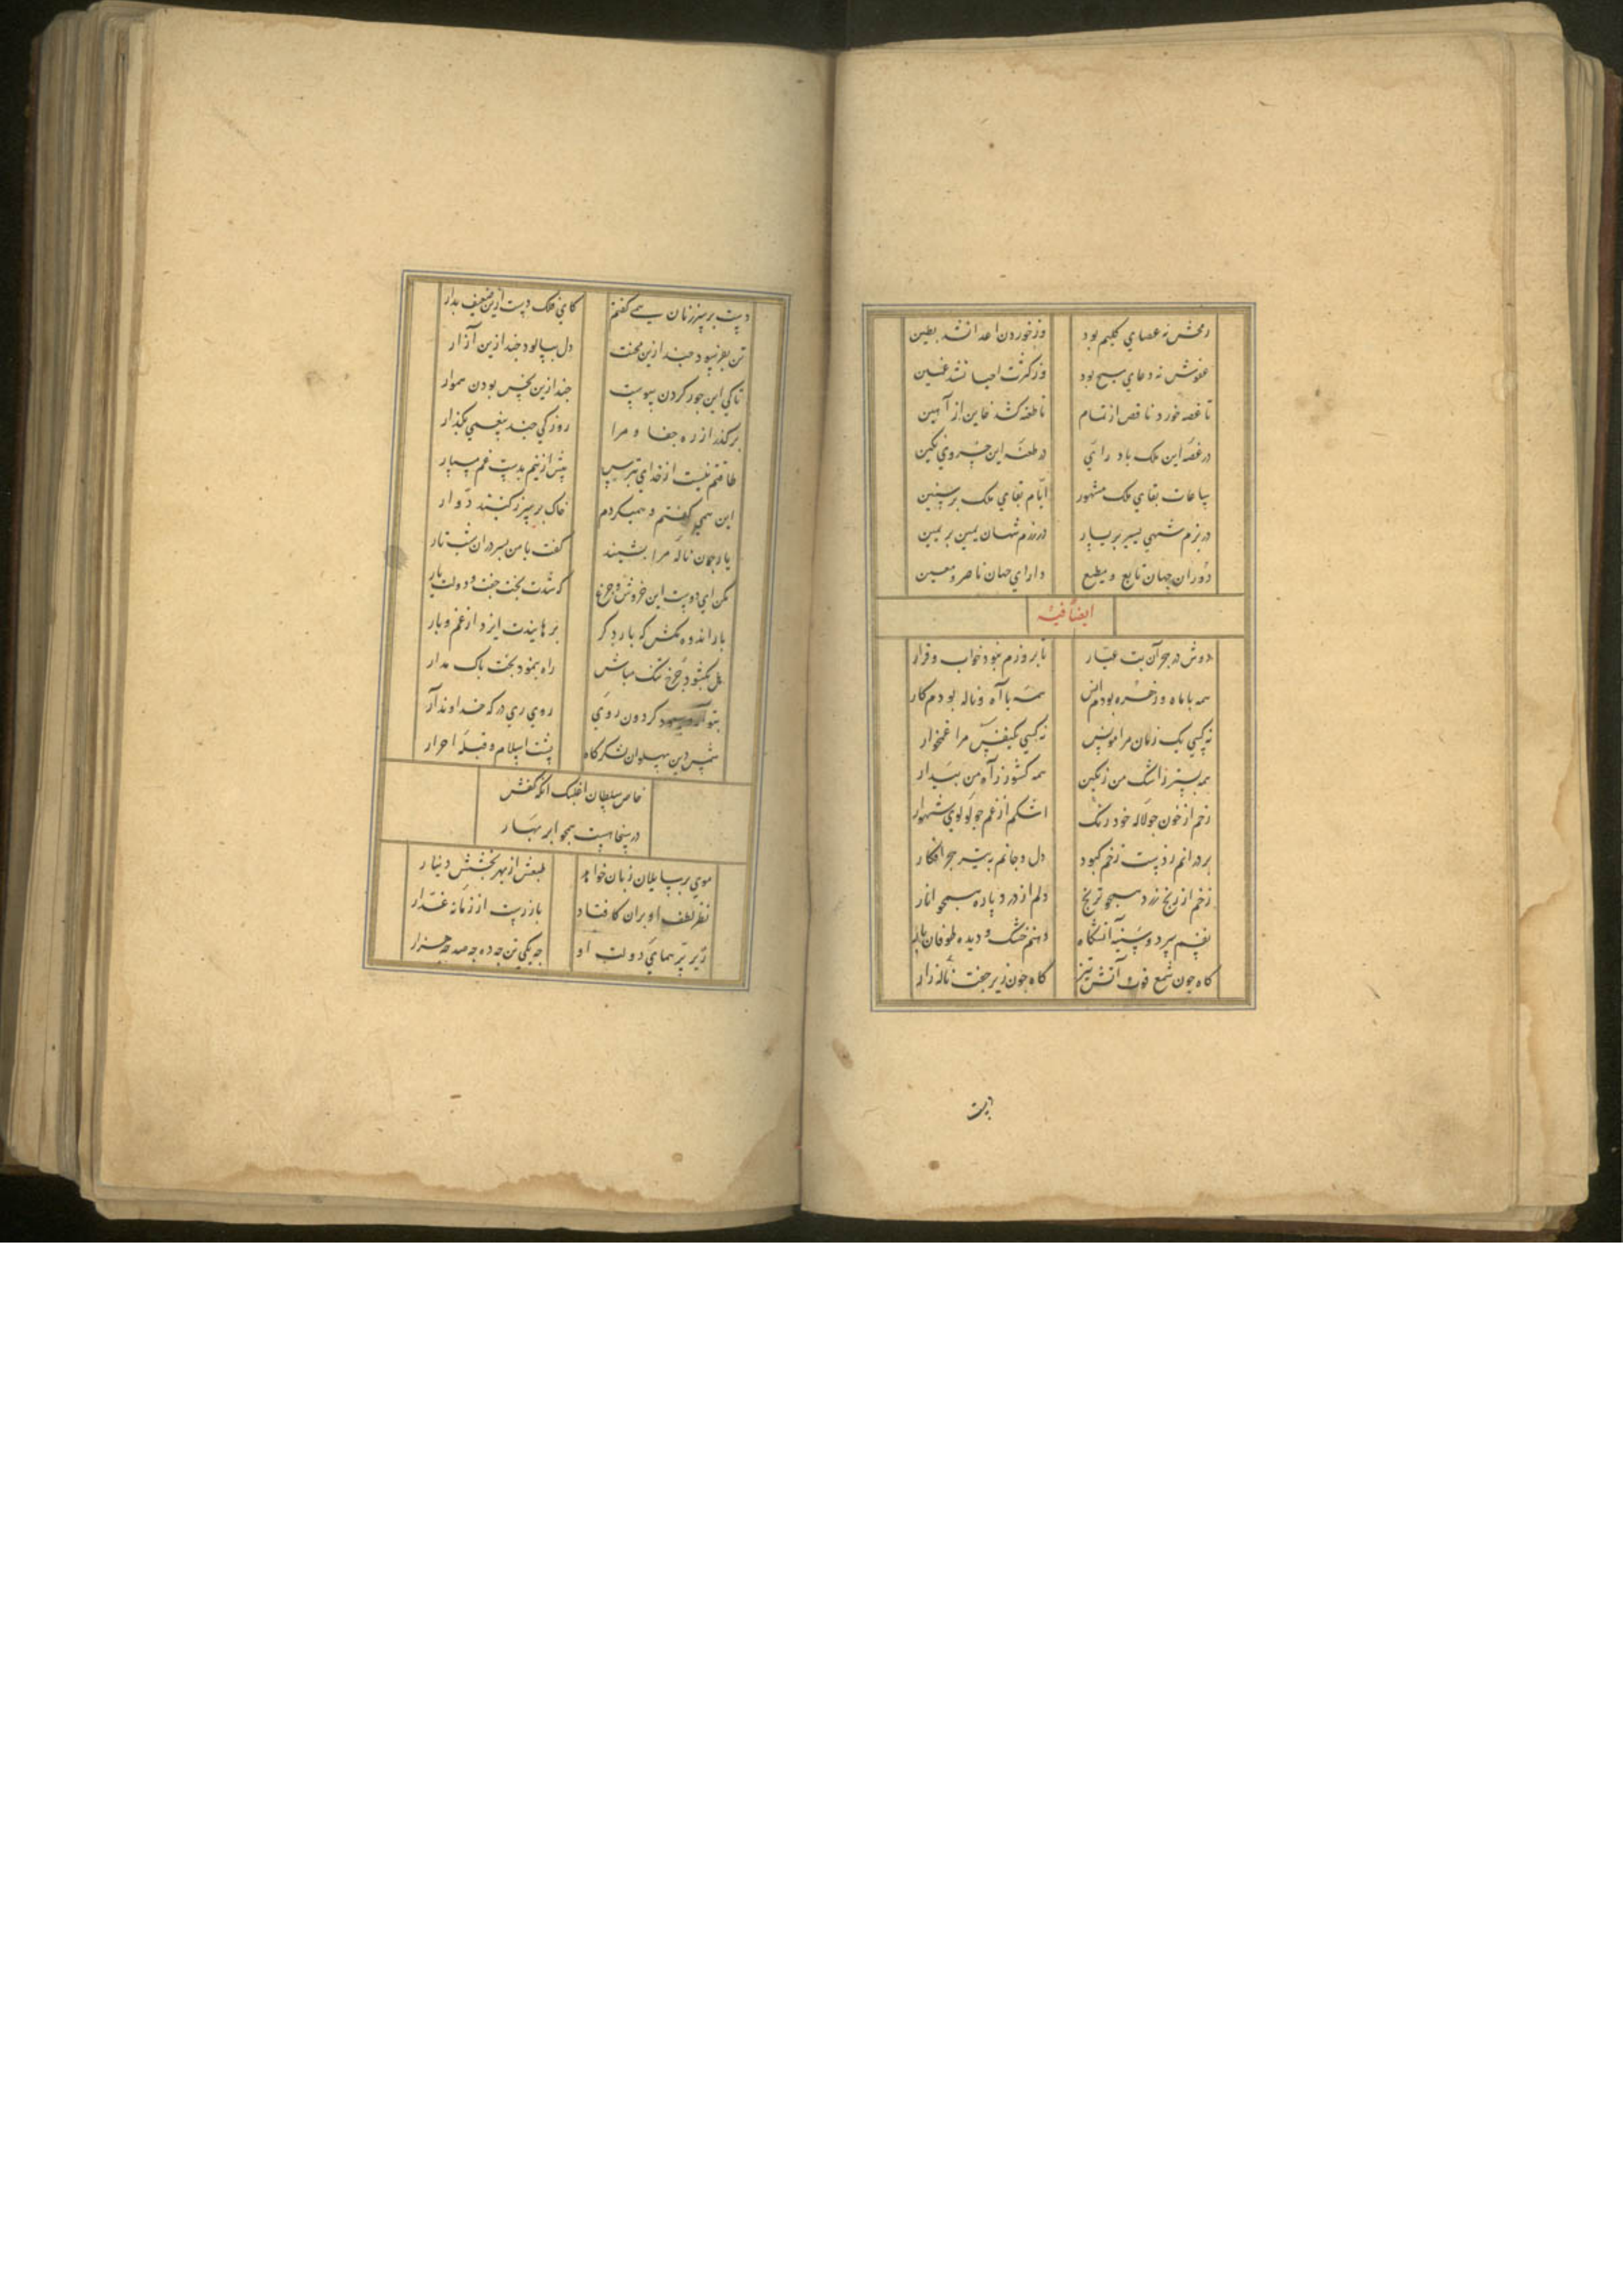 رمحش نه عصای کلیم بود وز خوردن اعدا نشد بطین
عفوش نه دعای مسیح بود وز کثرت احیا نشد غنین
تا غصه خورد ناقص از تمام تا طعنه کشد خاین از امین
در غصه این ملک باد رای در طعنه این خسروی نکین
ساعات بقای ملک مشهور ایام بقای ملک برسنین
در بزم شهی یسیر بر یسار در رزم شهان یمین بر یمین
دوران جهان تابع و مطیع دارای جهان ناصر و معین
ایضاً فیه
دوش در هجر آن بت عیار تا بروزم نبود خواب و قرار
همه با ماه و زهره بودم انس همه با آه و ناله بودم کار
نه کسی یک زمان مرا مونس نه کسی یک نفس مرا غمخوار
همه بستر ز اشک من رنکین همه کشور ز آه من بیدار
رخم از خون جو لاله خود رنک اشکم از غم جو لولوی شهوار
بر و رانم ز دست زخم کبود دل و جانم به تیر هجر افکار
رخم از رنج زرد همجو ترنج دلم از درد پاره همجو انار
نفسم سرد و سینه آتشکاه دهنم خشک و دیده طوفان بار
کاه جون شمع قوت آتش تیز کاه جون زیر جفت ناله زار
دست
دست بر سر زنان همی کفتم کای فلک دست ازین ضعیف بدار
تن بفرسود جند ازین محنت دل بپالود جند ازین آزار
تا کی این جور کردن پیوست جند ازین نحس بودن هموار
بر کذر از ره جفا و مرا روزکی جند بیغمی بکذار
طاقتم نیست از خدای بترس بیش ازینم بدست غم مسپار
این همی کفتم و همیکردم خاک بر سر ز کنبد دوار
یار جون ناله مرا بشنید کفت با من بسر در ان شب تار
مکن ای دوست این خروش و جزع که شدت بخت جفت و دولت یار
بار انده مکش که بار دکر برهانیدت ایزد از غم و بار
بل بکشود جرخ تنک مباش راه بنمود بخت باک مدار
بتو آورد کردون روی روی ری در که خداوند آر
شمس دین پهلوان لشکرکاه پشت اسلام و قبله احرار
خاص سلطان اغلبک انکه کفش
در سخا هست همجو ابر بهار
موی بر سایلان زبان خواهد طبعش از بهر بخشش دینار
نظر لطف او بران کافتاد باز رست از زمانه غدار
زیر پر همای دولت او جه یکی تن جه ده جه صد جه هزار